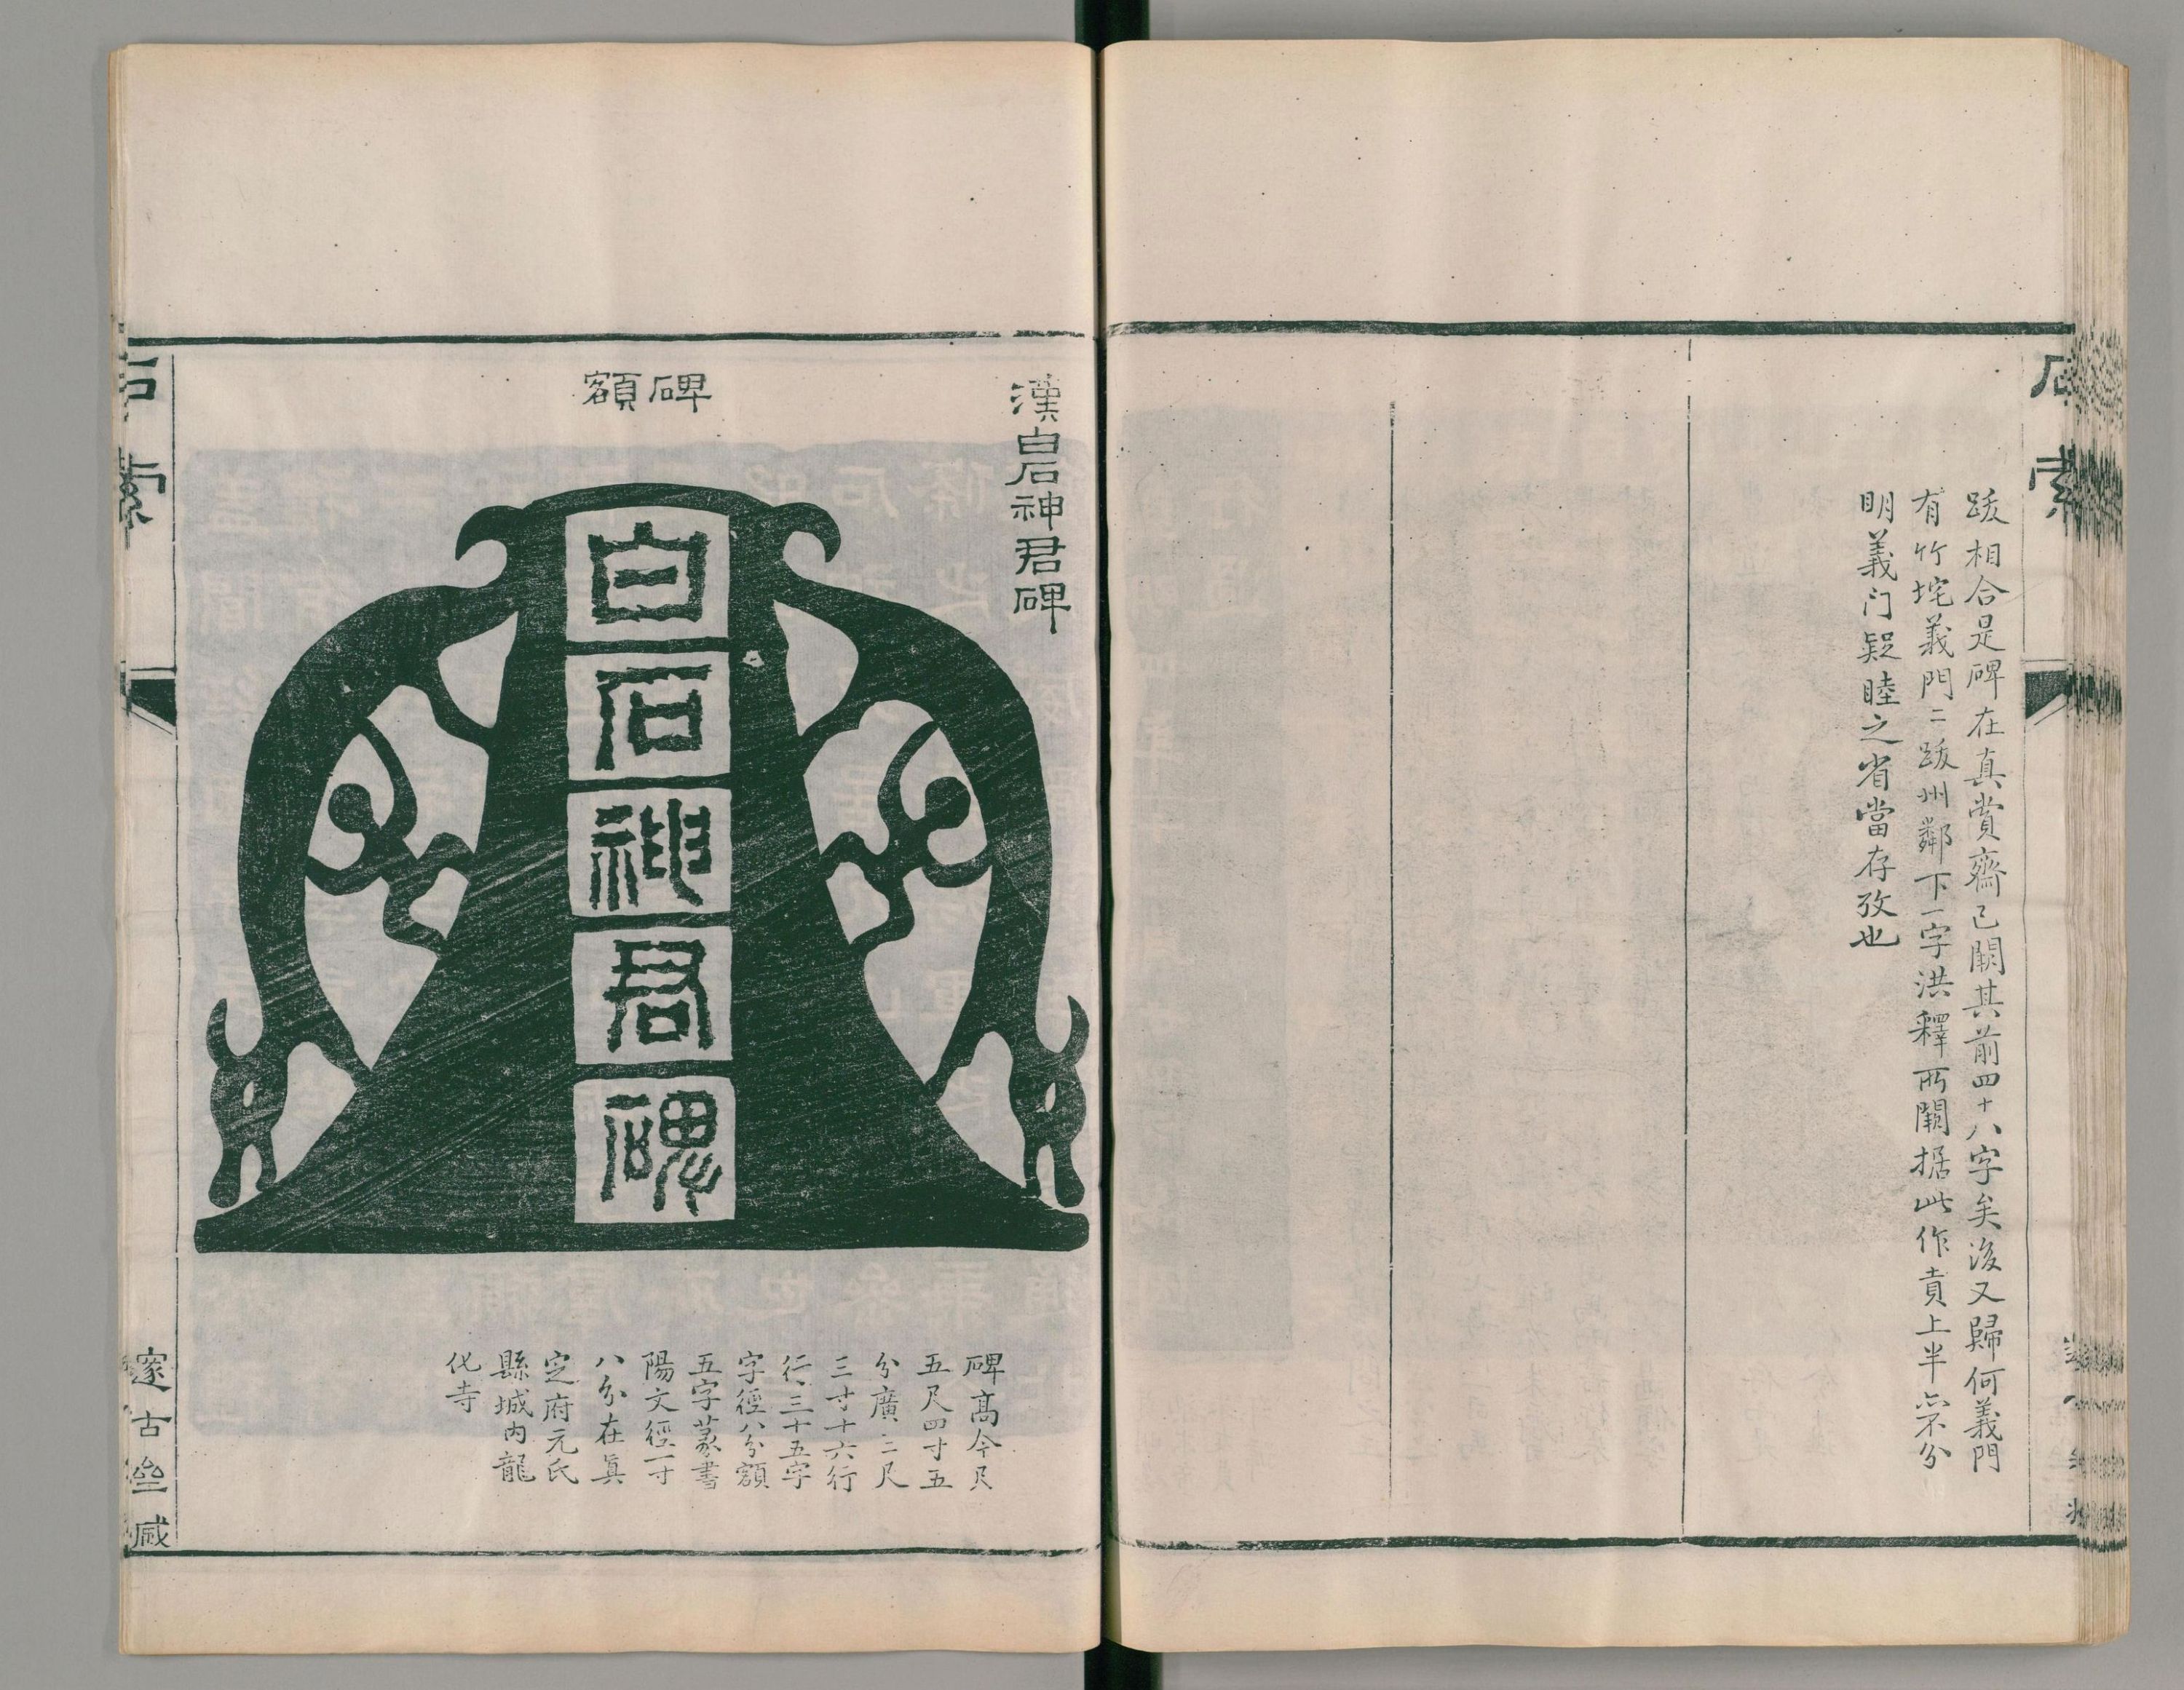 石索
跋相合是碑在真賞齋已闕其前四十八字矣後又歸何義門
有竹垞義門二跋州鄰下一字洪釋所闕据此作責上半宋不分
明義门疑睦之省當存攷也
漢白石神君碑
碑額
白石神君碑
碑高今尺
五尺四寸五
分廣二尺
三寸十六行
行三十五字
字徑八分額
五字篆書
陽文徑二寸
八分在真
定府元氏
縣城内龍
化寺
石索
邃古㕡臧